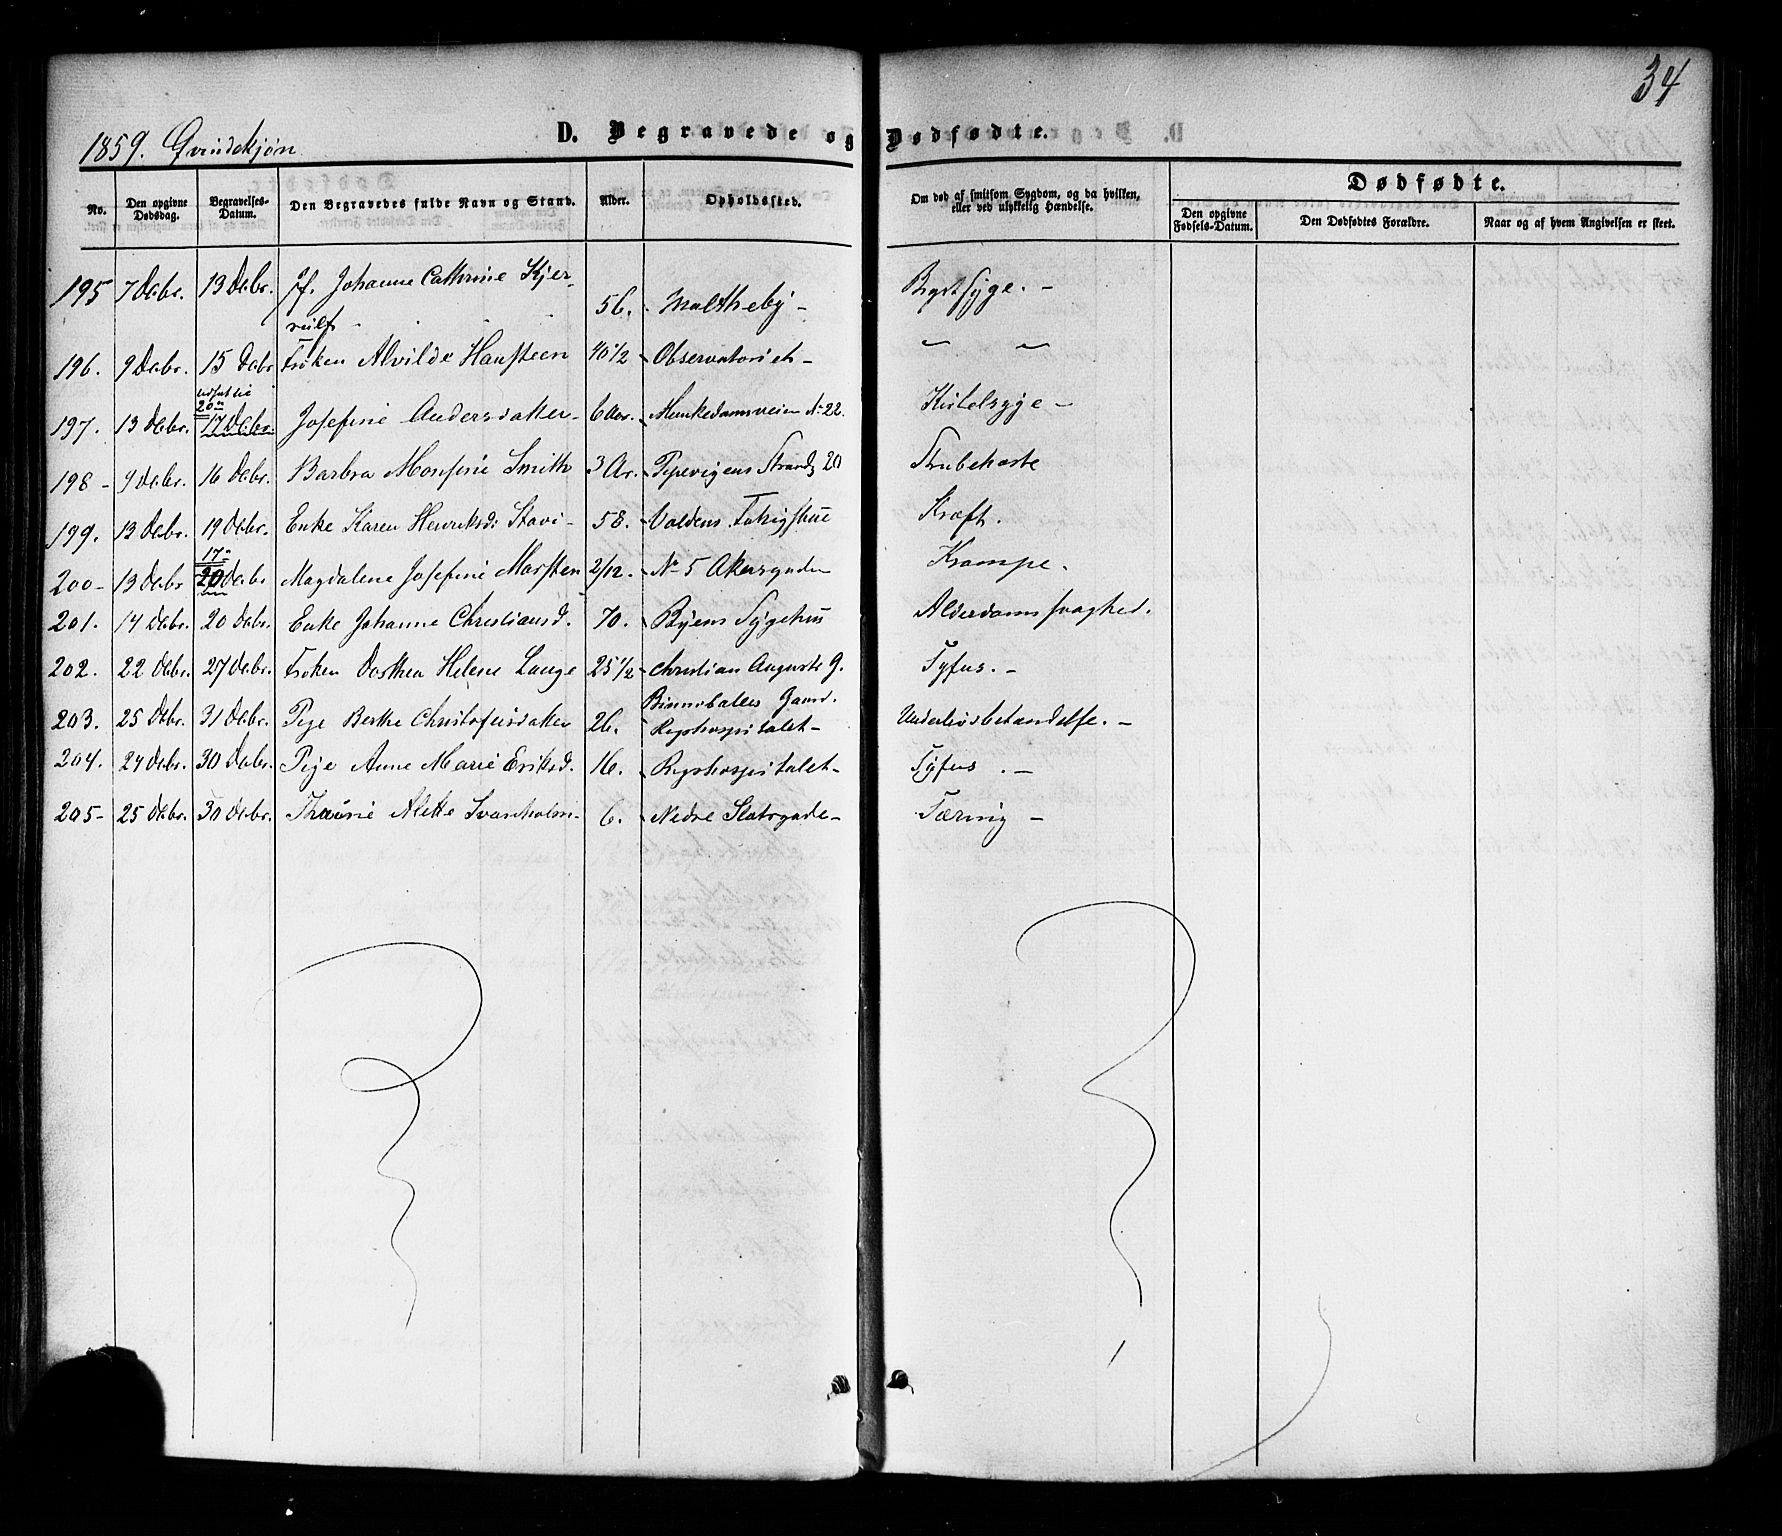 34
1859. Qvindekjøn
D. Begravede og Dødfødte.
No. Den opgivne Dødsdag. Begravelses-Datum. Den Begravedes fulde Navn og Stand. Alder. Opholdssted. Om død af smitsom Sygdom, og da hvilken, eller ved ulykkelig Hændelse. Dødfødte.
Den opgivne Fødsels-Datum. Den Dødfødtes Forældre. Naar og af hvem Angivelsen er skeet.
195 7 Dcbr. 13 Dcbr. Jf. Johanne Cathrine Kjer-
rulf - 56. Maltheby - Brystsyge. -
196. 9 Dcbr. 15 Dcbr Frøken Alvilde Hansteen 40 1/2 Observatoriet - — —
udsat til
20de
197. 13 Dcbr. 17 Dcbr. Josefine Andersdatter - 6 Aar. Munkedamsveien No 22. Kirtelsyge -
198 - 9 Dcbr. 16 Dcbr. Barbra Monsine Smith 3 Ar. Pipevigens Strandg 20 Strubehoste
199. 12 Dcbr. 19 Dcbr. Enke Karen Henriksd: - 58. Kræft.
17 -
200 - 13 Dcbr 20 Dcbr Magdalene Josefine Marsten 2/12. No 5 Akersgaden Krampe.
201. 14 Dcbr. 20 Dcbr. Enke Johanne Christiansd. 70. Byens Sygehus Alderdomssvaghed.
202. 22 Dcbr. 27 Dcbr. Frøken Dorthea Helene Lange 25 1/2 Christian Augusts G. Tyfus. -
Gaard.
203. 25 Dcbr. 31 Dcbr. Pige Berthe Christofersdatter 26. Rigshospitalet - Underlivsbetændelse. -
204. 24 Dcbr. 30 Dcbr. Pige Anne Marie Eriksd. 16. Rigshospitalet - Tyfus. -
205 - 25 Dcbr. 30 Dcbr. Alette Svanholm - 6. Nedre Slotsgade - Tæring -